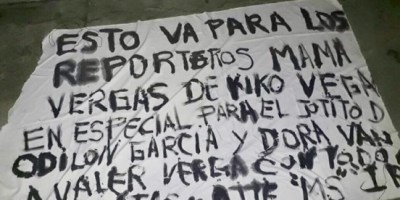 ESTO VA PARA LOS
REPORTEROS MAMA
VERGAS DE KIKO VEGA
EN ESPECIAL PARA EL JOTITO D
ODILON GARCIA Y DORA VAN
A VALER VERGA CON TODO
ATTE "MS"